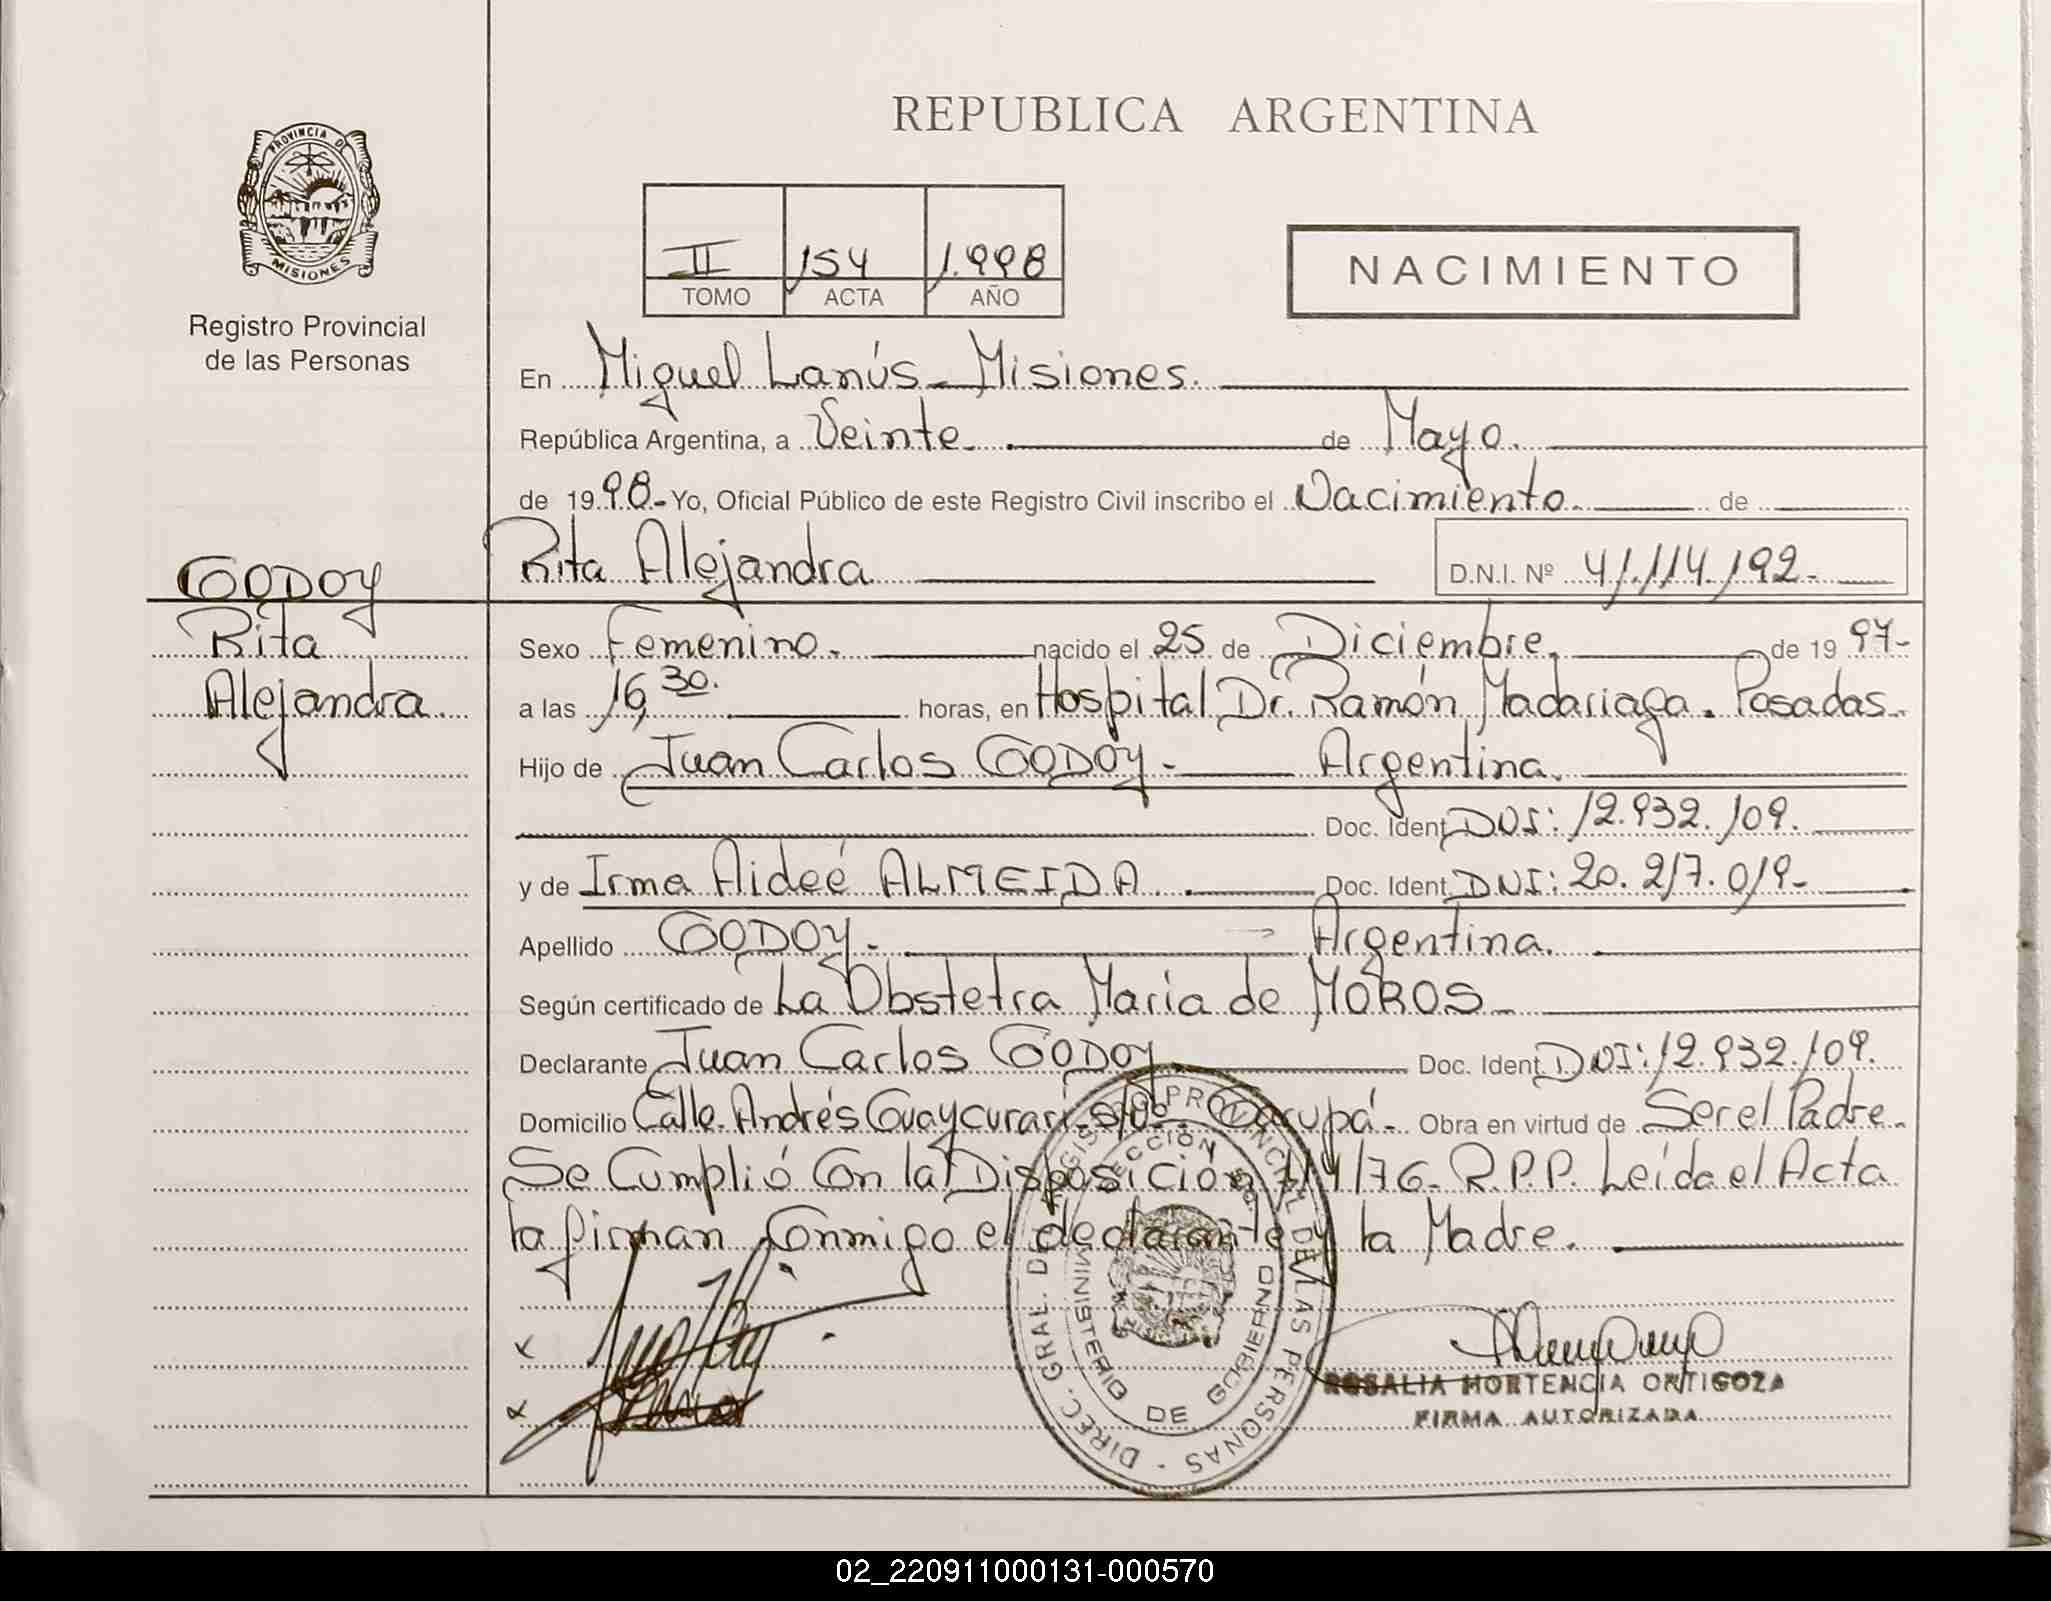 REPUBLICA ARGENTINA
PROVINCIA DE
MISIONES
Registro Provincial
de las Personas
II 154 1.998
TOMO ACTA AÑO
NACIMIENTO
En Miguel Lanús - Misiones.
República Argentina, a Veinte. de Mayo.
de 1998- Yo, Oficial Público de este Registro Civil inscribo el Nacimiento. de
Rita Alejandra D.N.I. Nº 41.114.192-
GODOY
Rita
Alejandra
Sexo Femenino. nacido el 25 de Diciembre. de 1997-
a las 16,30. horas, en Hospital Dr. Ramón Madariaga. Posadas.
Hijo de Juan Carlos GODOY - Argentina.
Doc. Ident. DNI: 12.932.109.
y de Irma Aideé ALMEIDA. Doc. Ident. DNI: 20.217.019-
Apellido GODOY - Argentina.
Según certificado de La Obstetra Maria de MOROS
Declarante Juan Carlos GODOY Doc. Ident. DNI: 12.932.109.
Domicilio Calle. Andrés Guaycurari s/Nº. Garupá- Obra en virtud de Ser el Padre.
Se Cumplió Con la Disposición /76- R.P.P. Leída el Acta
la firman Conmigo el declarante y la Madre.
DIREC. GRAL. DEL REGISTRO PROVINCIAL DE LAS PERSONAS -
MINISTERIO DE GOBIERNO
ROSALIA HORTENCIA ORTIGOZA
FIRMA AUTORIZADA
02_220911000131-000570